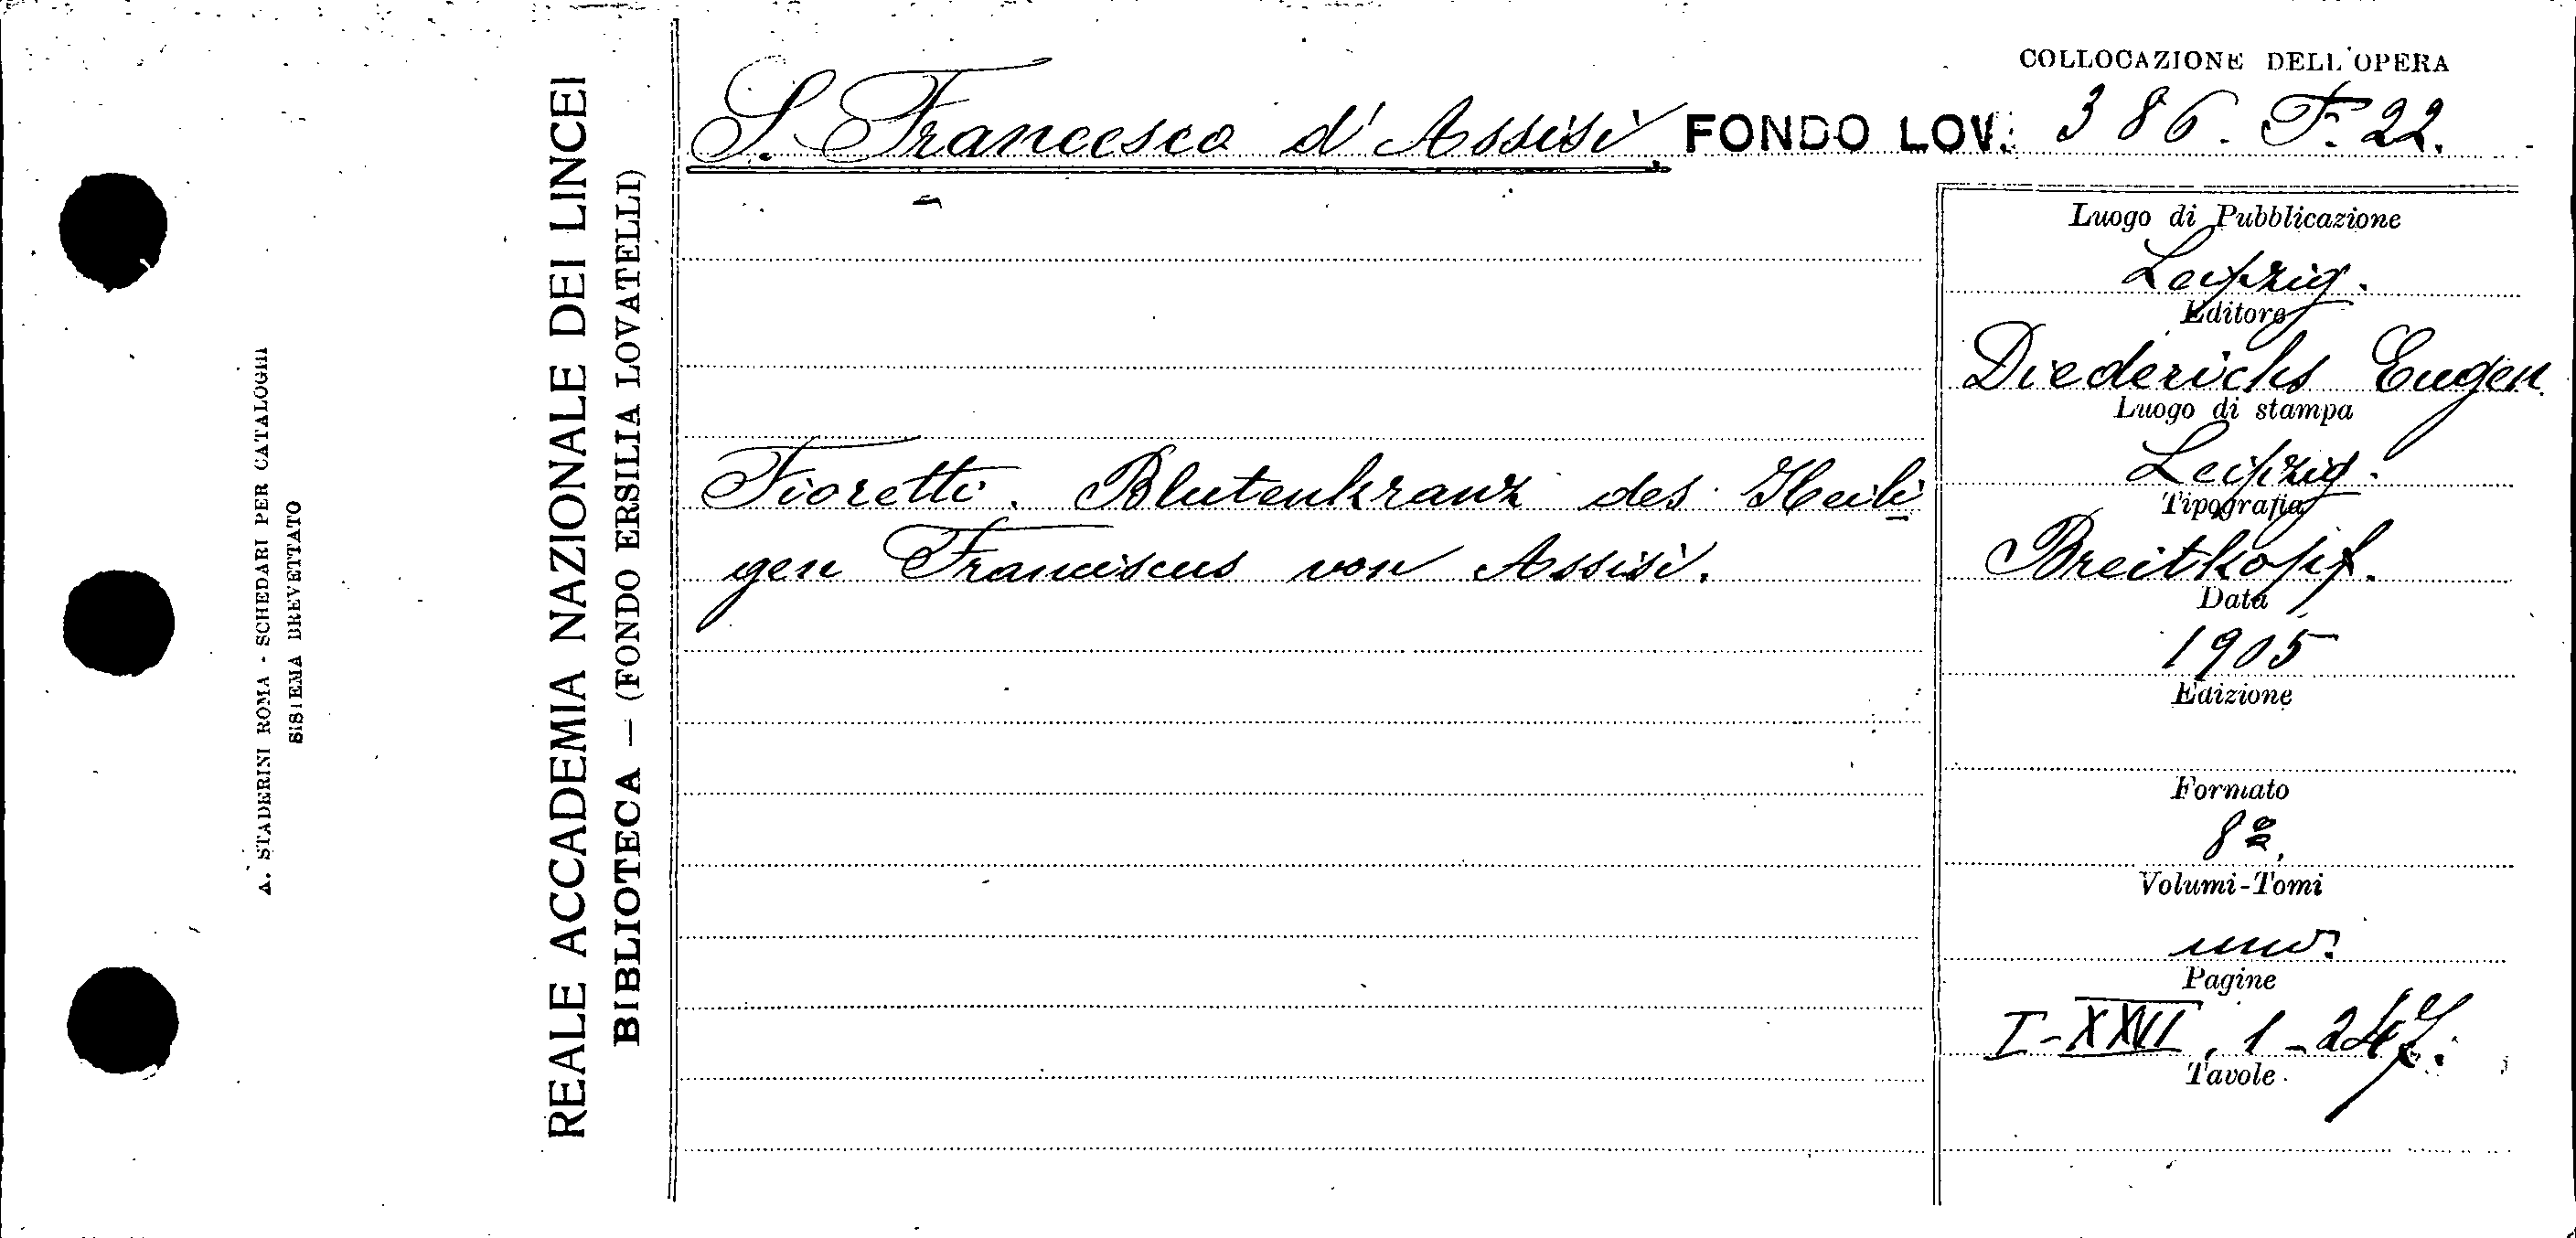 COLLOCAZIONE DELL'OPERA
S. Francesco d'Assisi. FONDO LOV. 386. F. 22.
Fioretti. Blutenkranz des Heili
gen Franciscus von Assisi.
Luogo di Pubblicazione
Leipzig.
Editore
Diederichs Eugen
Luogo di stampa
Leipzig.
Tipografia
Breitkopf.
Data
1905
Edizione
Formato
8º.
Volumi-Tomi
uno.
Pagine
I-XXVI, 1-247.
Tavole
REALE ACCADEMIA NAZIONALE DEI LINCEI
BIBLIOTECA — (FONDO ERSILIA LOVATELLI)
A. STADERINI ROMA - SCHEDARI PER CATALOGHI
SISTEMA BREVETTATO